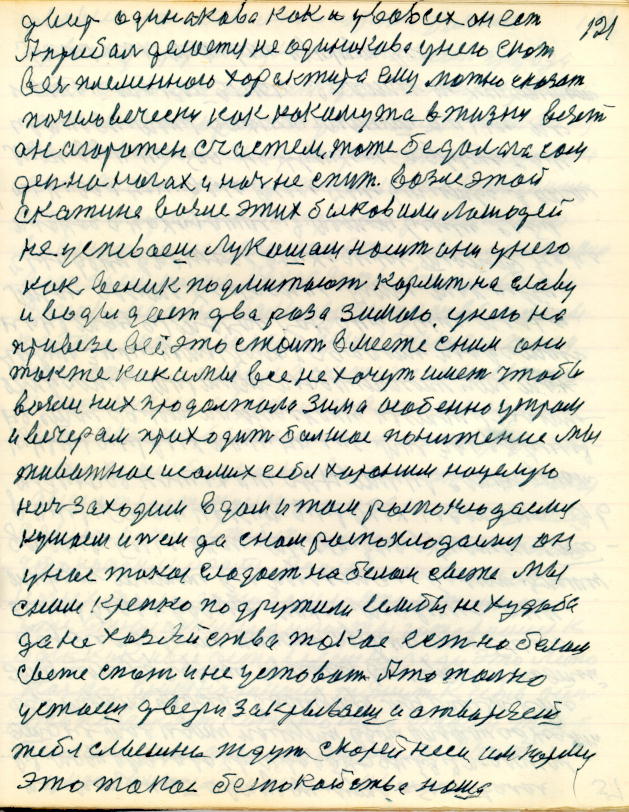 121
двир одинакова как и у вовсех он ест
А прибал делаетя не одинакова у него скот
вег племенного характира ему можно сказат
почеловечески как какомужа в жизни везет
он агарожен счастем, тоже бедолага
ден на ногах и ноч не спит. возле этой
скатине возле этих быков или лошадей
не успеваеш лукошам носит они у него
как веник подмитают кармит на славу
и воды дает два раза зимою. у него на
привезе всё это стоит вместе сним они
также как и мы все не хочут имет чтобы
возли них продолжала зима особенно утрам
и вечерам приходит балшое понижение мы
животное и самих себя хороним нацелую
ноч заходим в дом и там распохлодаемя
кушаем и тем да сном распохлодаемя он
у нас такой сладост на белом свете мы
сним крепко подружили если бы не худоба
да не хозяйства такое ест на белам
свете спат и не устават А то толко
устаеш двери закрываеш и атваряеш
тебя слышна ждут скорей неси им корму
это такое беспокойства наша